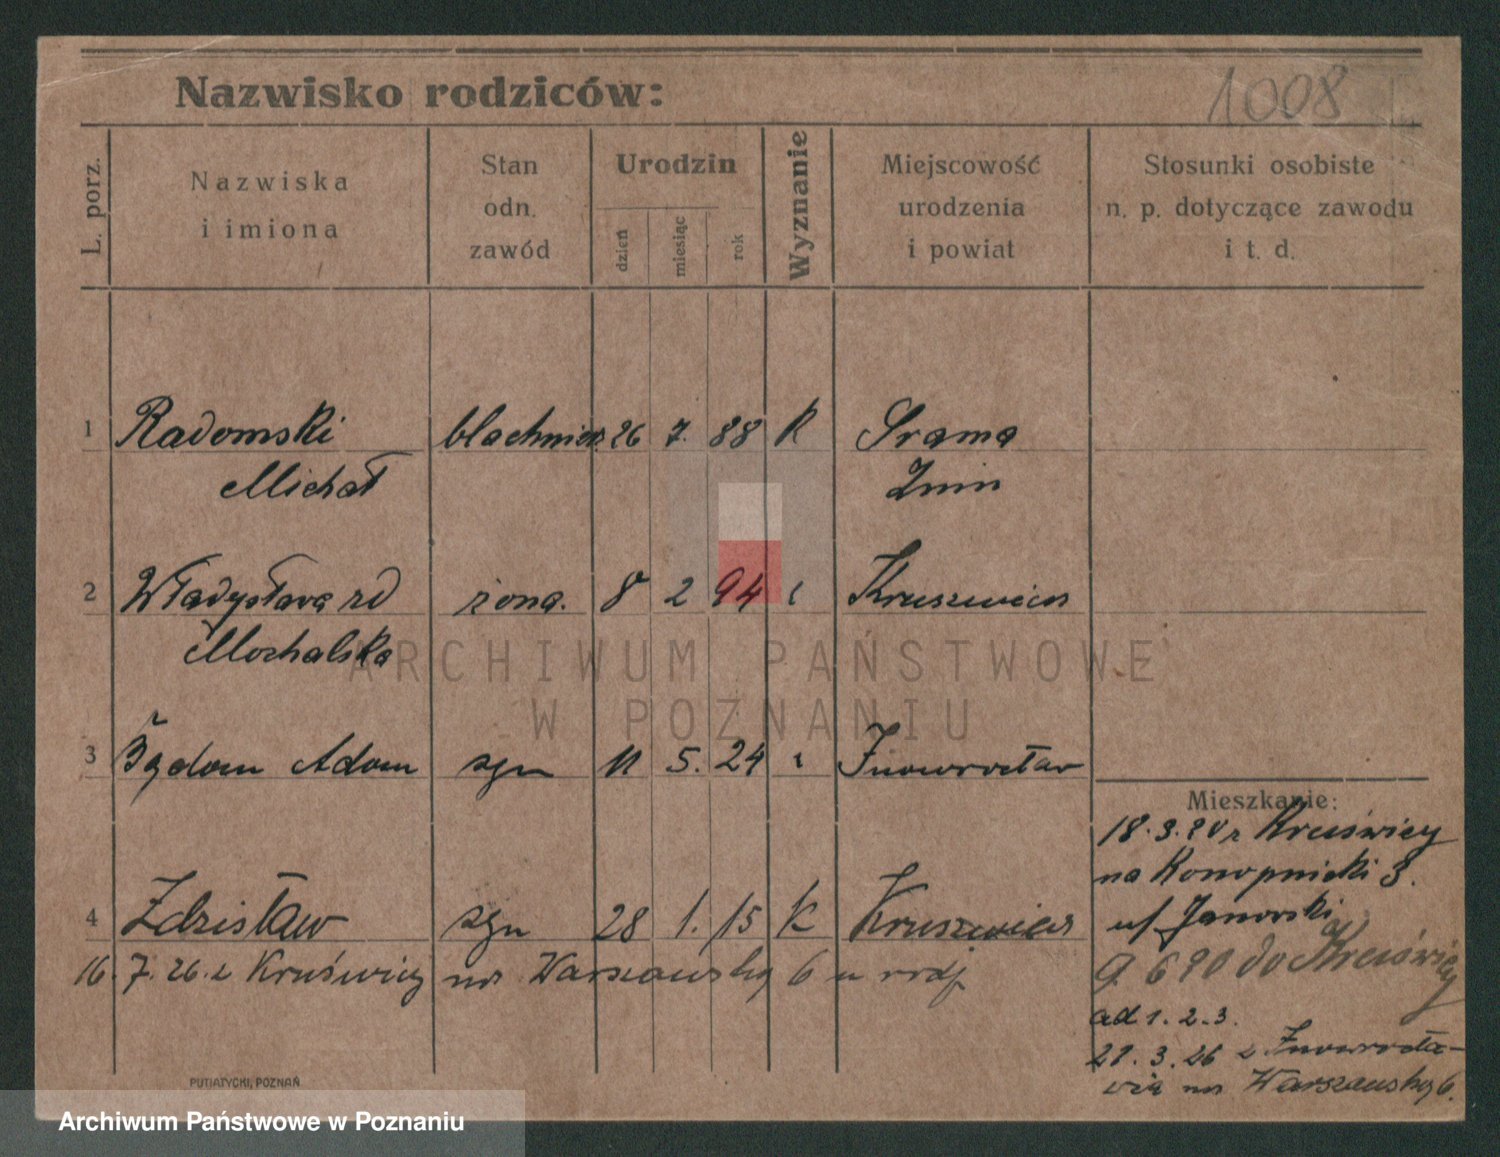 Nazwisko rodziców:
1008
L. porz.
Nazwiska
i imiona
Stan
odn.
zawód
Urodzin
dzień
miesiąc
rok
Wyznanie
Miejscowość
urodzenia
i powiat
Stosunki osobiste
n. p. dotyczące zawodu
i t. d.
1 Radomski blachnierz. 26 7. 88 K Srama
Michał Żnin
2 Władysława zd żona. 8 2 94 Kruszwica
Mochalska
3 Adam syn 11 5. 24 Inowrocław
Mieszkanie:
18.3.20 z Kruświcy
na Konopnicki 3.
u/ Janorski
4 Zdzisław syn 28 1. 15 K Kruszwica
16.7.26. z Kruświcy na Warszawską 6
9 6 20 do Kruświcy
ad 1. 2. 3.
21.3.26 z Inowrocła-
wia na Warszawską 6.
PUTIATYCKI, POZNAŃ
ARCHIWUM PAŃSTWOWE
W POZNANIU
Archiwum Państwowe w Poznaniu